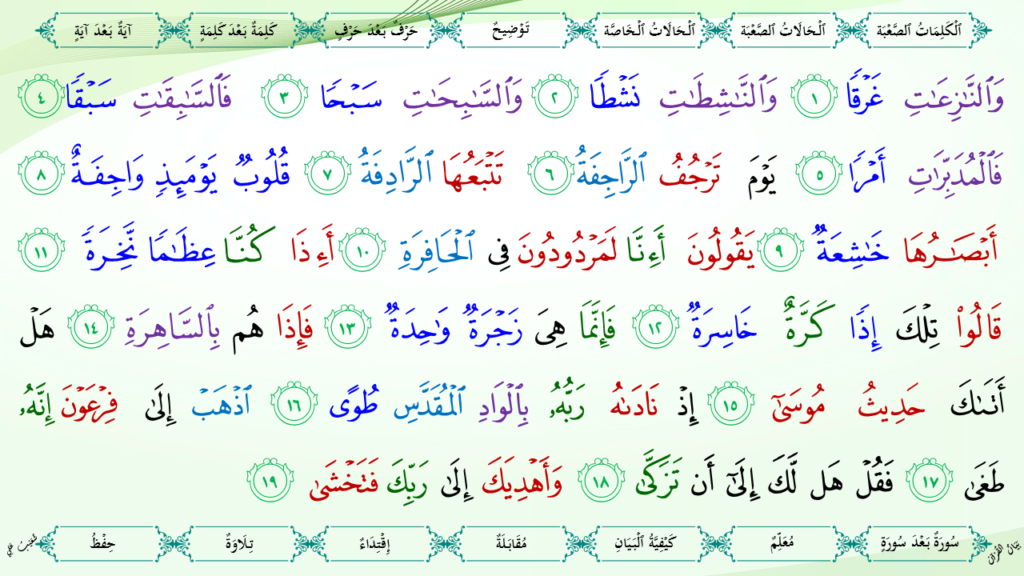 اَلْكَلِمَاتُ الصَّعْبَة اَلْحَالَاتُ الصَّعْبَة اَلْحَالَاتُ الْخَاصَّة تَوْضِيحٌ حَرْفٌ بَعْدَ حَرْفٍ كَلِمَةٌ بَعْدَ كَلِمَةٍ آيَةٌ بَعْدَ آيَةٍ
وَٱلنَّٰزِعَٰتِ غَرْقًا ١ وَٱلنَّٰشِطَٰتِ نَشْطًا ٢ وَٱلسَّٰبِحَٰتِ سَبْحًا ٣ فَٱلسَّٰبِقَٰتِ سَبْقًا ٤
فَٱلْمُدَبِّرَٰتِ أَمْرًا ٥ يَوْمَ تَرْجُفُ ٱلرَّاجِفَةُ ٦ تَتْبَعُهَا ٱلرَّادِفَةُ ٧ قُلُوبٌ يَوْمَئِذٍ وَاجِفَةٌ ٨
أَبْصَٰرُهَا خَٰشِعَةٌ ٩ يَقُولُونَ أَءِنَّا لَمَرْدُودُونَ فِى ٱلْحَافِرَةِ ١٠ أَءِذَا كُنَّا عِظَٰمًا نَّخِرَةً ١١
قَالُوا۟ تِلْكَ إِذًا كَرَّةٌ خَاسِرَةٌ ١٢ فَإِنَّمَا هِىَ زَجْرَةٌ وَٰحِدَةٌ ١٣ فَإِذَا هُم بِٱلسَّاهِرَةِ ١٤ هَلْ
أَتَىٰكَ حَدِيثُ مُوسَىٰٓ ١٥ إِذْ نَادَىٰهُ رَبُّهُۥ بِٱلْوَادِ ٱلْمُقَدَّسِ طُوًى ١٦ ٱذْهَبْ إِلَىٰ فِرْعَوْنَ إِنَّهُۥ
طَغَىٰ ١٧ فَقُلْ هَل لَّكَ إِلَىٰٓ أَن تَزَكَّىٰ ١٨ وَأَهْدِيَكَ إِلَىٰ رَبِّكَ فَتَخْشَىٰ ١٩
سُورَةٌ بَعْدَ سُورَةٍ مُعَلِّمٌ كَيْفِيَّةُ الْبَيَانِ مُقَابَلَةٌ إِقْتِدَاءٌ تِلَاوَةٌ حِفْظٌ
بَيَانُ القُرآن